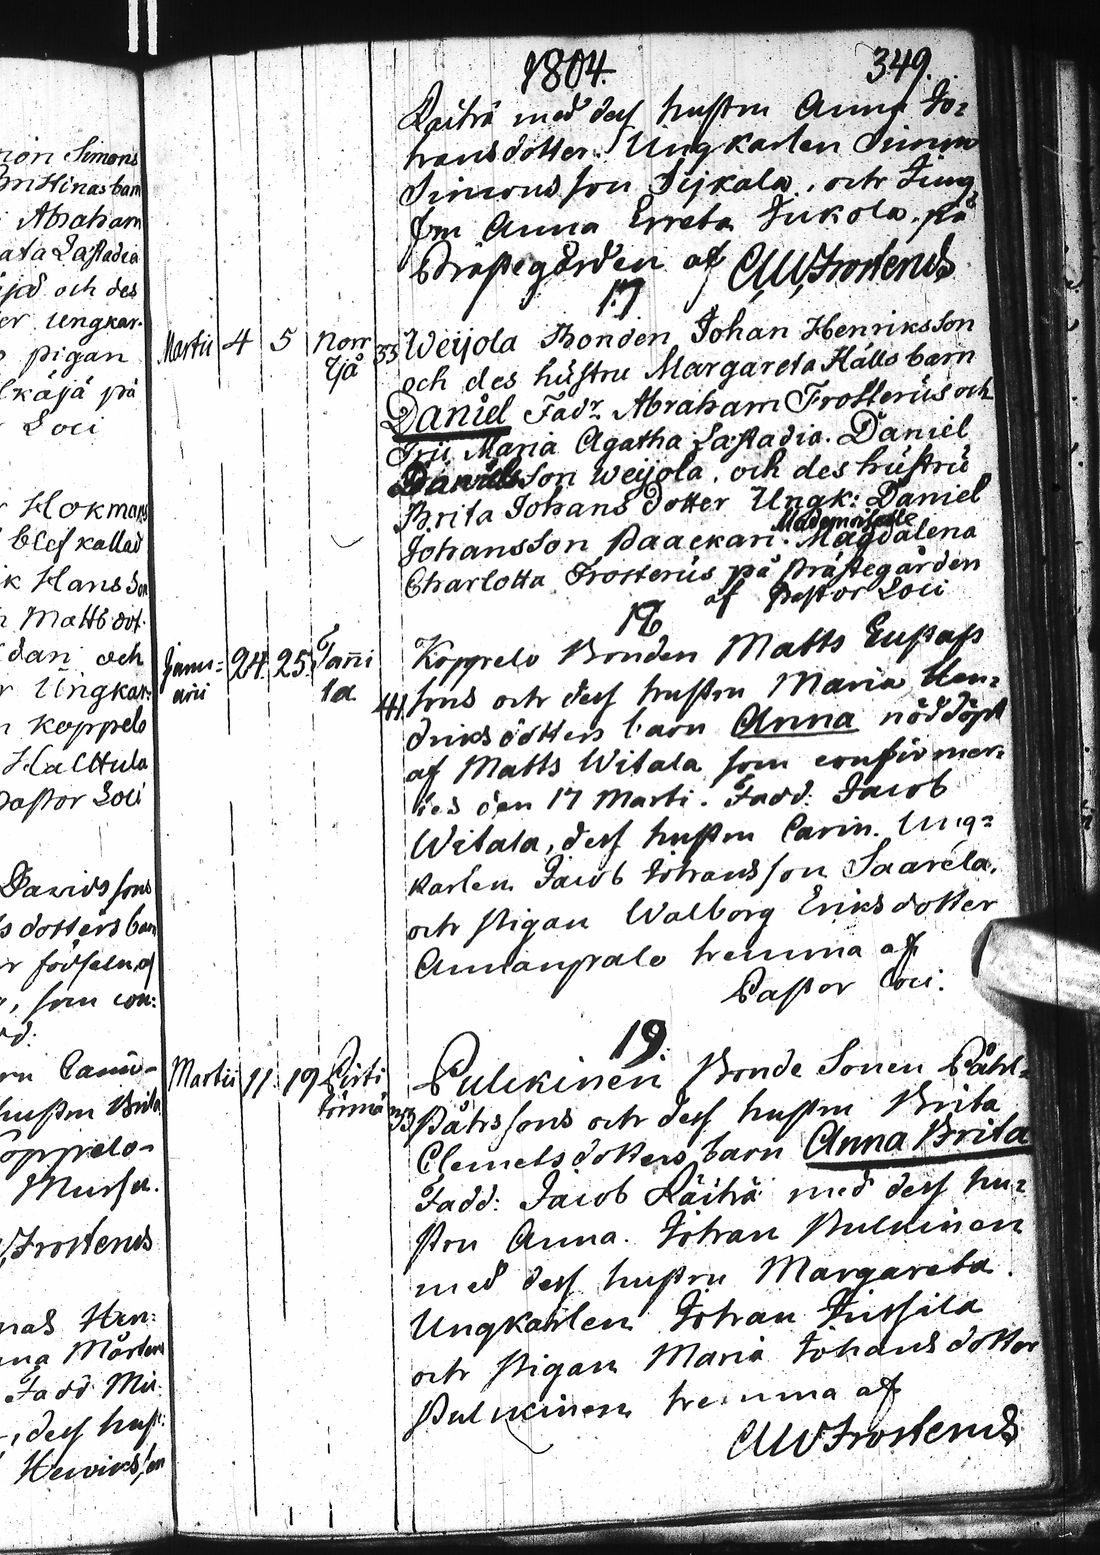 1804. 349.
Räihä med dess hustru Anna Jo=
hansdotter. Ungkarlen Simon
Simonsson Sijkala, och Jung
frn Anna Erreta Jukola. på
Prästegården af CMV Frosterus
17
Martii 4 5 Norr 33 Weijola Bonden Johan Henriksson
Tjå och des hustru Margareta Hålls barn
Daniel Fadr. Abraham Frosterus och
Fru Maria Agatha Lästadia. Daniel
Danielsson Weijola, och des hustru
Brita Johans dotter Ungk: Daniel
Mademoiselle
Johansson Paackari. Magdalena
Charlotta Frosterus på Prästegården
af Pastor Loci
18
Janu= 24. 25. Tanni Koppelo Bonden Matts Gustafs
arii la 41 sons och dess hustru Maria Hen=
driksdotters barn Anna nöddöpt
af Matts Witala som confirmer=
des den 17 Marti. Fadd: Jacob
Witala, dess hustru Carin. Ung=
karlen Jacob Johansson Saarela.
och Pigan Walborg Eriksdotter
Annanpalo hemma af
Pastor Loci.
19.
Martii 11 19 Pirti Pulkinen Bonde Sonen Påhl
törmä 33 Påhlssons och dess hustru Brita
Clemetsdotters barn Anna Brita
Fadd: Jacob Räihä med dess hu=
stru Anna. Johan Pulkinen
med dess hustru Margareta.
Ungkarlen Johan Jussila
och Pigan Maria Johansdotter
Pulkinen hemma af
CMV Frosterus
Simons
Hinas barn
Abraham
Lästadia
och des
Ungkar-
pigan
på
Loci
Hokmans
kallad
Hansson
Matts dot.
och
Ungkar:
Koppelo
Halttula
Pastor Loci
Davidssons
dotters barn
födseln, af
som con:
hustru Brita
Koppelo-
Mursu.
Frosterus
Hen:
Mårtens
Fadd
dess hust:
Henriksson